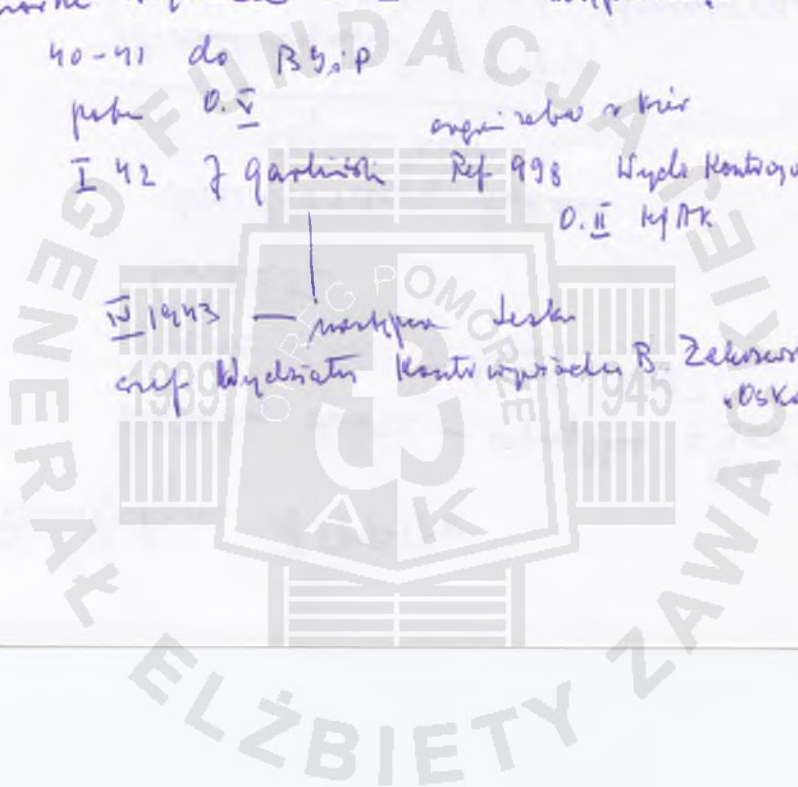 40-41 do BIiP
potem O.V
organizator i kier
I 42 J Garliński Ref 998 Wydz Kontrwyw
O.II KG AK
IV 1943 — następca Leska
szef Wydziału Kontrwywiadu B. Zakrzewsk
"Oska
FUNDACJA GENERAŁ ELŻBIETY ZAWACKIEJ
OKRĘG POMORZE
1939 1945
AK